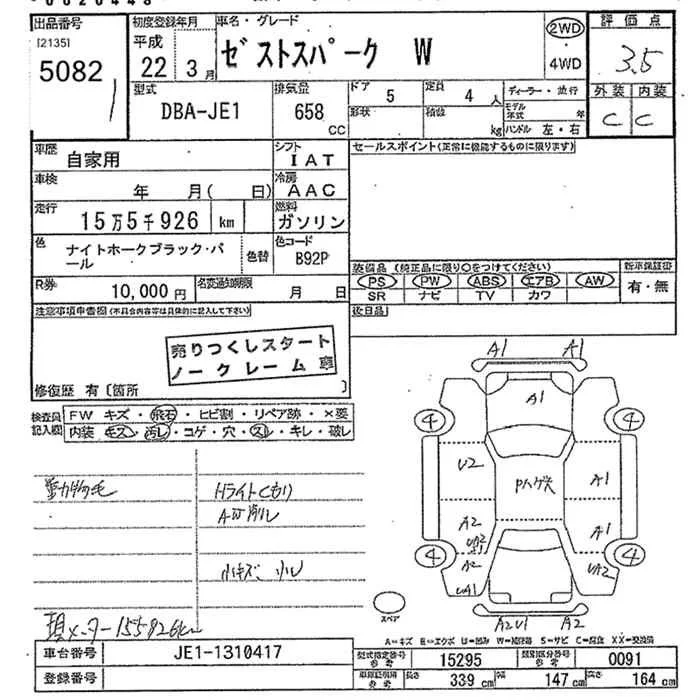 出品番号
[2135]
5082
初度登録年月
平成
22年 3月
車名・グレード
ゼストスパーク W
2WD
4WD
評価点
3.5
外装 内装
C C
型式
DBA-JE1
排気量
658
CC
ドア 5
定員 4 人
形状
積載 kg
ディーラー・並行
モデル年式 年
ハンドル 左・右
車歴 自家用
シフト IAT
車検 年 月( 日)
冷房 AAC
走行 15万5千926 km
燃料 ガソリン
色 ナイトホークブラック・パール
色替
色コード B92P
R券 10,000円
名変通知期限 月 日
セールスポイント(正常に機能するものに限ります)
装備品(純正品に限り○をつけてください)
PS PW ABS エアB AW
SR ナビ TV カワ
新車保証書
有・無
後日品
注意事項申告欄(不具合内容等は具体的に記入して下さい)
売りつくしスタート
ノークレーム 車
修復歴 有〔箇所 〕
検査員記入欄
FW キズ・飛石・ヒビ割・リペア跡・×要
内装 キズ・汚レ・コゲ・穴・スレ・キレ・破レ
動物毛
Hライトくもり
AW削レ
小キズ、小U
現メーター155926km
A1 A1
A1
4 4
U2
Pハゲ大
A1
A2
A1
UA2
A2
UA1
UA2
4 4
スペア
A2U1 A2
A=キズ E=エクボ U=凹み W=補修跡 S=サビ C=腐食 XX=交換済
車台番号 JE1-1310417
登録番号
型式指定番号 参考 15295
類別区分番号 参考 0091
車庫証明用 参考 長さ 339 cm 幅 147 cm 高さ 164 cm